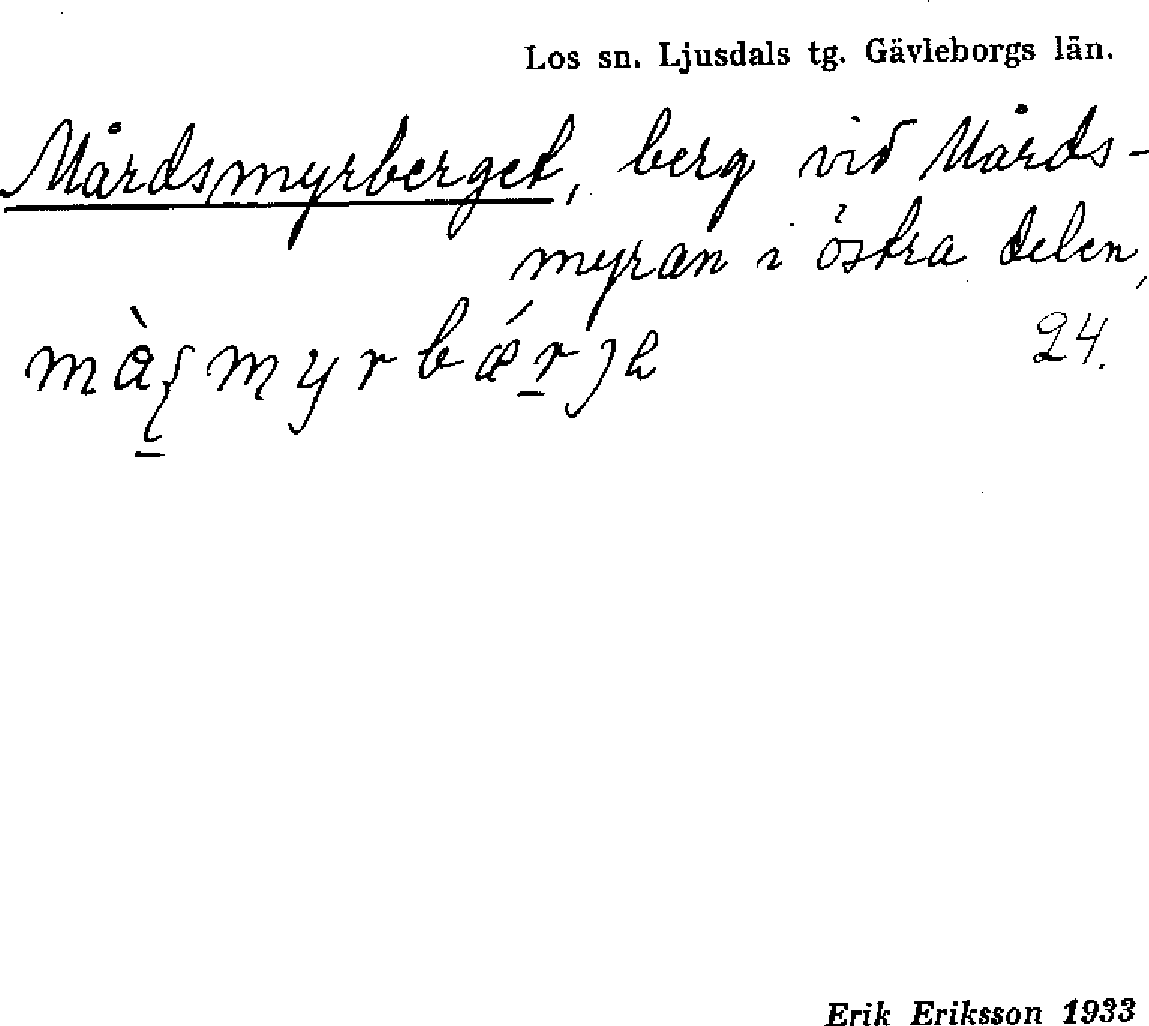 Los sn. Ljusdals tg. Gävleborgs län.
Mårdsmyrberget, berg vid Mårds-
myran i östra delen,
24.
Erik Eriksson 1933